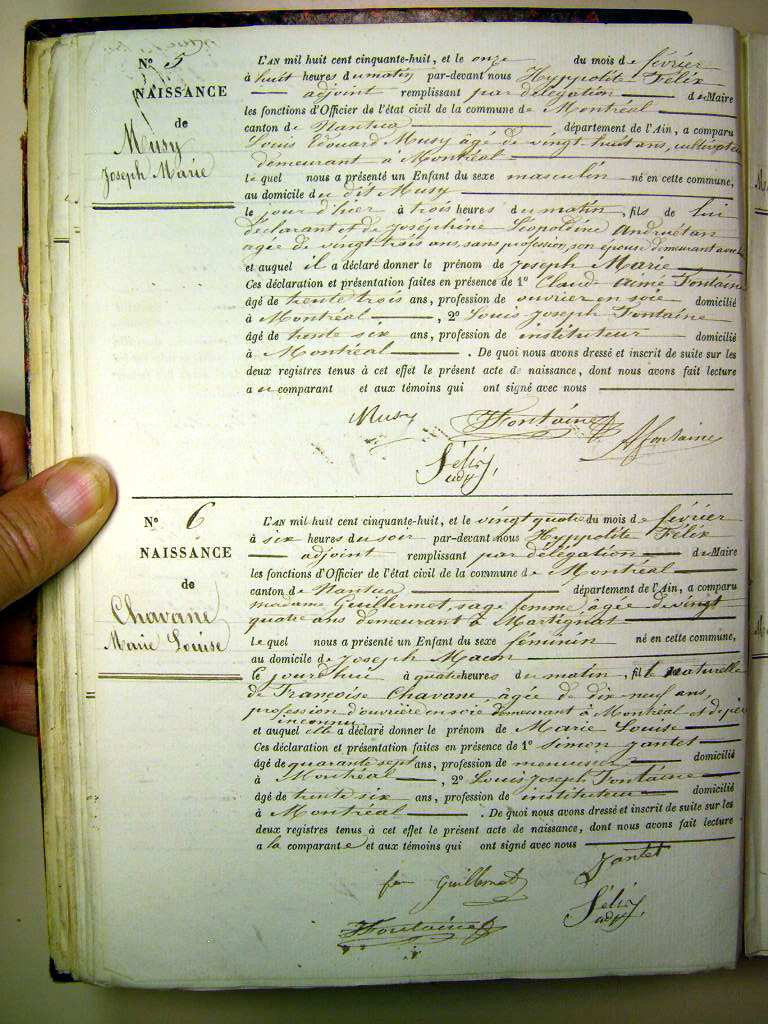 N° 5
NAISSANCE
de
Musy
Joseph Marie
L'AN mil huit cent cinquante-huit, et le onze du mois de février
à huit heures du matin par-devant nous Hyppolite Félix
adjoint remplissant par délégation du Maire
les fonctions d'Officier de l'état civil de la commune de Montréal
canton de Nantua département de l'Ain, a comparu
Louis Edouard Musy âgé de vingt huit ans, cultivateur
demeurant à Montréal
lequel nous a présenté un Enfant du sexe masculin né en cette commune,
au domicile du dit Musy
le jour d'hier à trois heures du matin, fils de lui
déclarant et de Joséphine Léopoldine Andruétan
agée de vingt trois ans, sans profession, son épouse demeurant avec lui
et auquel il a déclaré donner le prénom de Joseph Marie
Ces déclaration et présentation faites en présence de 1° Claude Aimé Fontaine
âgé de trente trois ans, profession de ouvrier en soie domicilié
à Montréal, 2° Louis Joseph Fontaine
âgé de trente six ans, profession de instituteur domicilié
à Montréal. De quoi nous avons dressé et inscrit de suite sur les
deux registres tenus à cet effet le présent acte de naissance, dont nous avons fait lecture
a u comparant et aux témoins qui ont signé avec nous
Musy Fontaine Afontaine
Félix
adj.
N° 6
NAISSANCE
de
Chavane
Marie Louise
L'AN mil huit cent cinquante-huit, et le vingt quatre du mois de février
à six heures du soir par-devant nous Hyppolite Félix
adjoint remplissant par délégation du Maire
les fonctions d'Officier de l'état civil de la commune de Montréal
canton de Nantua département de l'Ain, a comparu
madame Guillermet, sage femme âgée de vingt
quatre ans demeurant à Martignat
lequel nous a présenté un Enfant du sexe féminin né en cette commune,
au domicile de Joseph Macon
le jourd'hui à quatre heures du matin, fille naturelle
de Françoise Chavane, âgée de dix neuf ans,
profession d'ouvrière en soie demeurant à Montréal et de père
inconnu
et auquel elle a déclaré donner le prénom de Marie Louise
Ces déclaration et présentation faites en présence de 1° Simon Jantet
âgé de quarante sept ans, profession de menuisier domicilié
à Montréal, 2° Louis Joseph Fontaine
âgé de trente six ans, profession de instituteur domicilié
à Montréal. De quoi nous avons dressé et inscrit de suite sur les
deux registres tenus à cet effet le présent acte de naissance, dont nous avons fait lecture
a la comparante et aux témoins qui ont signé avec nous
Jantet
fe Guillermet
Félix
adj.
Fontaine